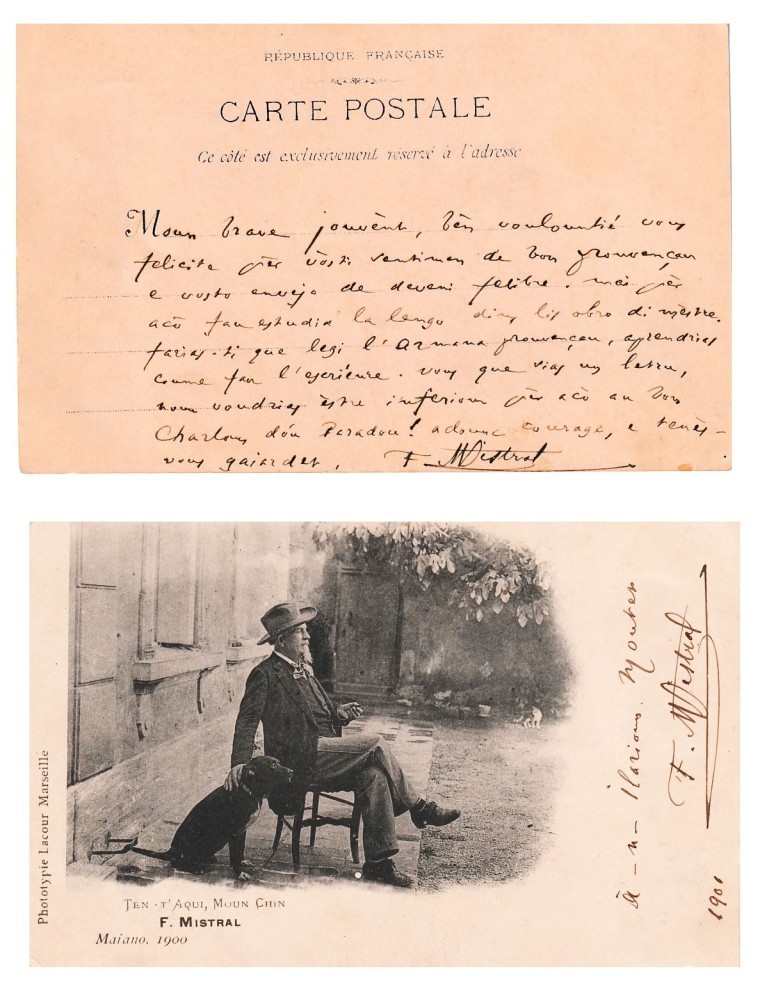 RÉPUBLIQUE FRANÇAISE
CARTE POSTALE
Ce côté est exclusivement réservé à l'adresse
Moun brave jouvènt, bèn voulountié vous
felicite pèr vòsti sentimen de bon prouvençau
e vosto envejo de deveni felibre. mai pèr
acò fau estudia la lengo dins lis obro di mèstre.
farias-ti que legi l'Armana prouvençau, aprendrias
coume fau l'escriéure. vous que sias un letru,
noun voudrias èstre inferiour pèr acò au bon
Charloun dóu Paradou! adounc courage, e tenès-
vous gaiardet.
F. Mistral
Phototypie Lacour Marseille
TEN-T'AQUI, MOUN CHIN
F. MISTRAL
Maiano. 1900
à-n-Ilarioun
F. Mistral
1901